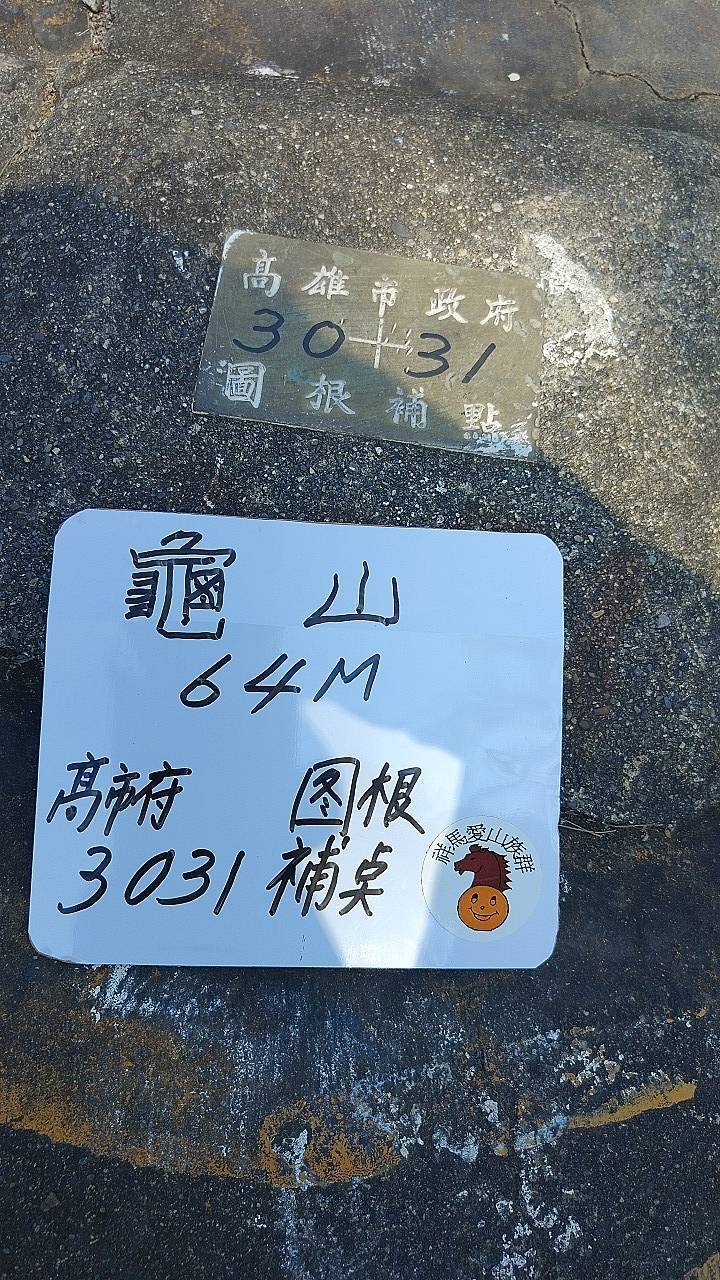 高雄市政府
30 31
圖根補點
龜山
64M
高市府 图根
3031 補点
祥馬愛山族群